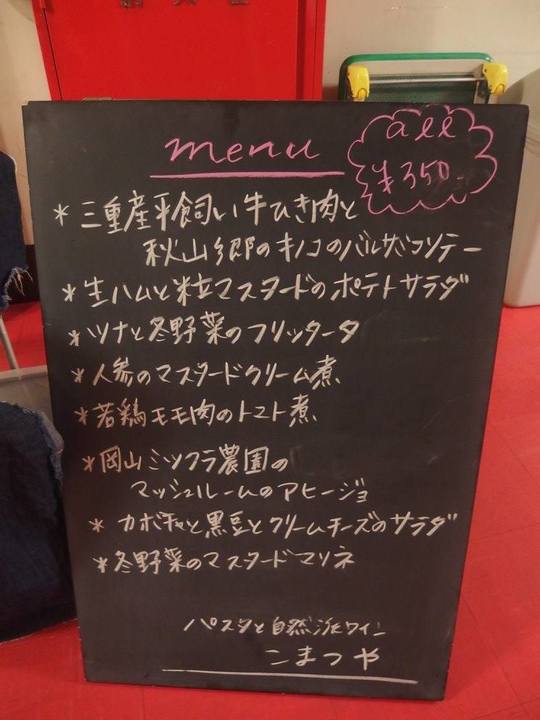 menu
all
¥350-
*三重産平飼い牛ひき肉と
秋山郷のキノコのバルサミコソテー
*生ハムと粒マスタードのポテトサラダ
*ツナと冬野菜のフリッタータ
*人参のマスタードクリーム煮
*若鶏モモ肉のトマト煮
*岡山ミツクラ農園の
マッシュルームのアヒージョ
*カボチャと黒豆とクリームチーズのサラダ
*冬野菜のマスタードマリネ
パスタと自然派ワイン
こまつや